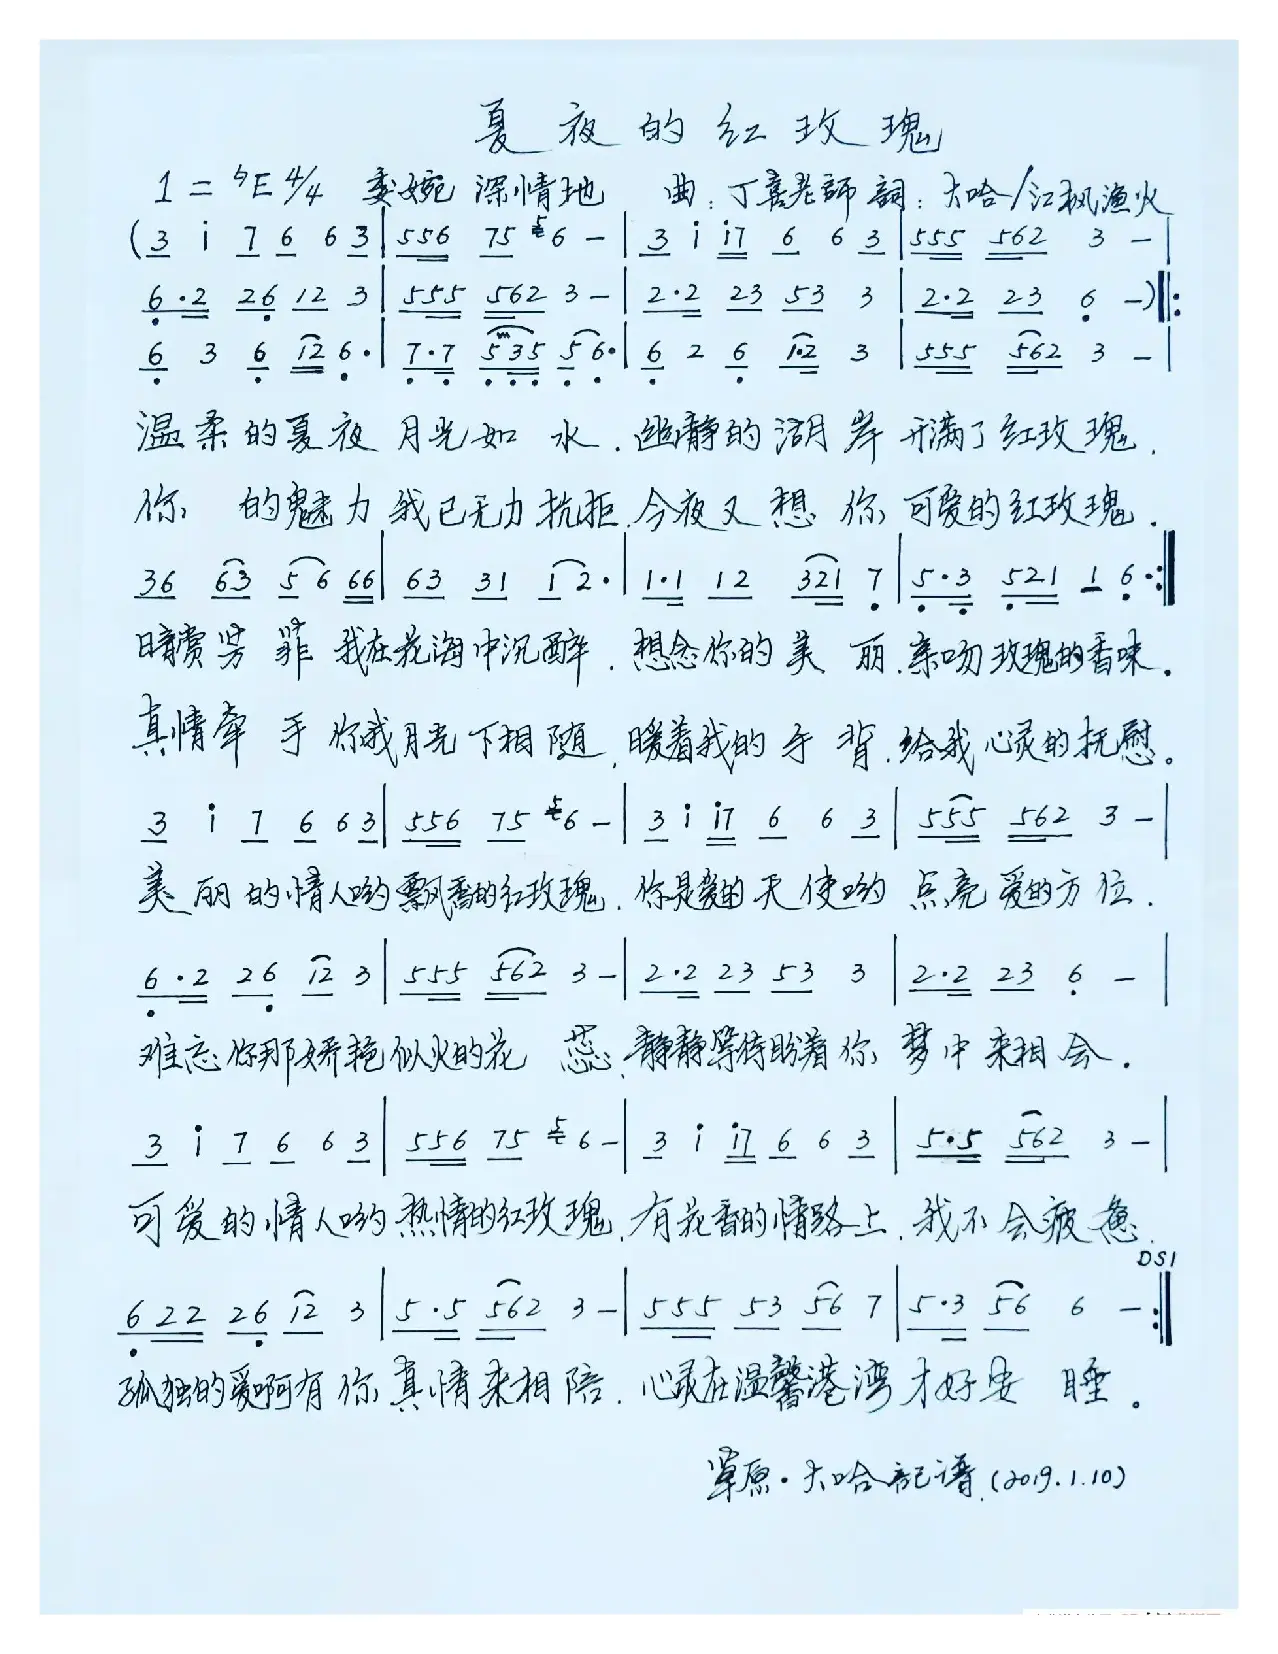 夏夜的红玫瑰
1=♭E 4/4 委婉 深情地 曲:丁喜老師 詞:大哈/江枫渔火
(3 i 7 6 6 3|556 75 5 6 -|3 i i7 6 6 3|555 562 3 -|
6·2 26 12 3|555 562 3 -|2·2 23 53 3|2·2 23 6 -)‖:
6 3 6 12 6·|7·7 535 5 6·|6 2 6 1·2 3|555 562 3 -|
温柔的夏夜 月光如 水.幽静的湖岸 开满了红玫瑰.
你 的魅力 我已无力抗拒.今夜又想 你 可爱的红玫瑰.
36 63 5 6 66|63 31 1 2·|1·1 12 321 7|5·3 521 1 6·:‖
暗赏芳 菲 我在花海中沉醉.想念你的美 丽.亲吻玫瑰的香味.
真情牵 手 你我月光下相随.暖着我的手背.给我心灵的抚慰。
3 i 7 6 63|556 75 5 6 -|3 i i7 6 6 3|555 562 3 -|
美丽的情人哟飘香的红玫瑰.你是爱的天使哟 点亮爱的方位.
6·2 26 12 3|555 562 3 -|2·2 23 53 3|2·2 23 6 -|
难忘你那娇艳似火的花 蕊.静静等待盼着你 梦中来相会.
3 i 7 6 6 3|556 75 5 6 -|3 i i7 6 6 3|5·5 562 3 -|
可爱的情人哟 热情的红玫瑰.有花香的情路上.我不会疲惫.
DS1
622 26 12 3|5·5 562 3 -|555 53 56 7|5·3 56 6 -:‖
孤独的爱啊有你真情来相陪.心灵在温馨港湾才好安 睡。
草原·大哈記谱.(2019.1.10)